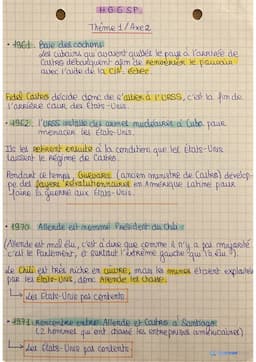 HGGSP
Thème 1 / Axe 2
• 1961 : Baie des cochons
Les cubains qui avaient quittés le pays à l'arrivée de
Castro débarquent afin de renverser le pouvoir
avec l'aide de la CIA. échec
Fidel Castro décide donc de s'allier à l'URSS, c'est la fin de
l'arrière cour des États-Unis.
• 1962 : l'URSS installe des armes nucléaires à Cuba pour
menacer les États-Unis.
Ils les retirent ensuite à la condition que les États-Unis
laissent le régime de Castro.
Pendant ce temps, Guevara (ancien ministre de Castro) dévelop-
pe des foyers révolutionnaires en Amérique Latine pour
faire la guerre aux États-Unis.
• 1970 : Allende est nommé Président du Chili
(Allende est mal élu, c'est à dire que comme il n'y a pas majorité
c'est le Parlement, et surtout l'extrême gauche qui l'a élu).
Le Chili est très riche en cuivre, mais les mines étaient exploitées
par les États-Unis, donc Allende les chasse.
↳ Les États-Unis pas contents
• 1971 : Rencontre entre Allende et Castro à Santiago
(2 hommes qui ont chassé les entreprises américaines)
↳ Les États-Unis pas contents.